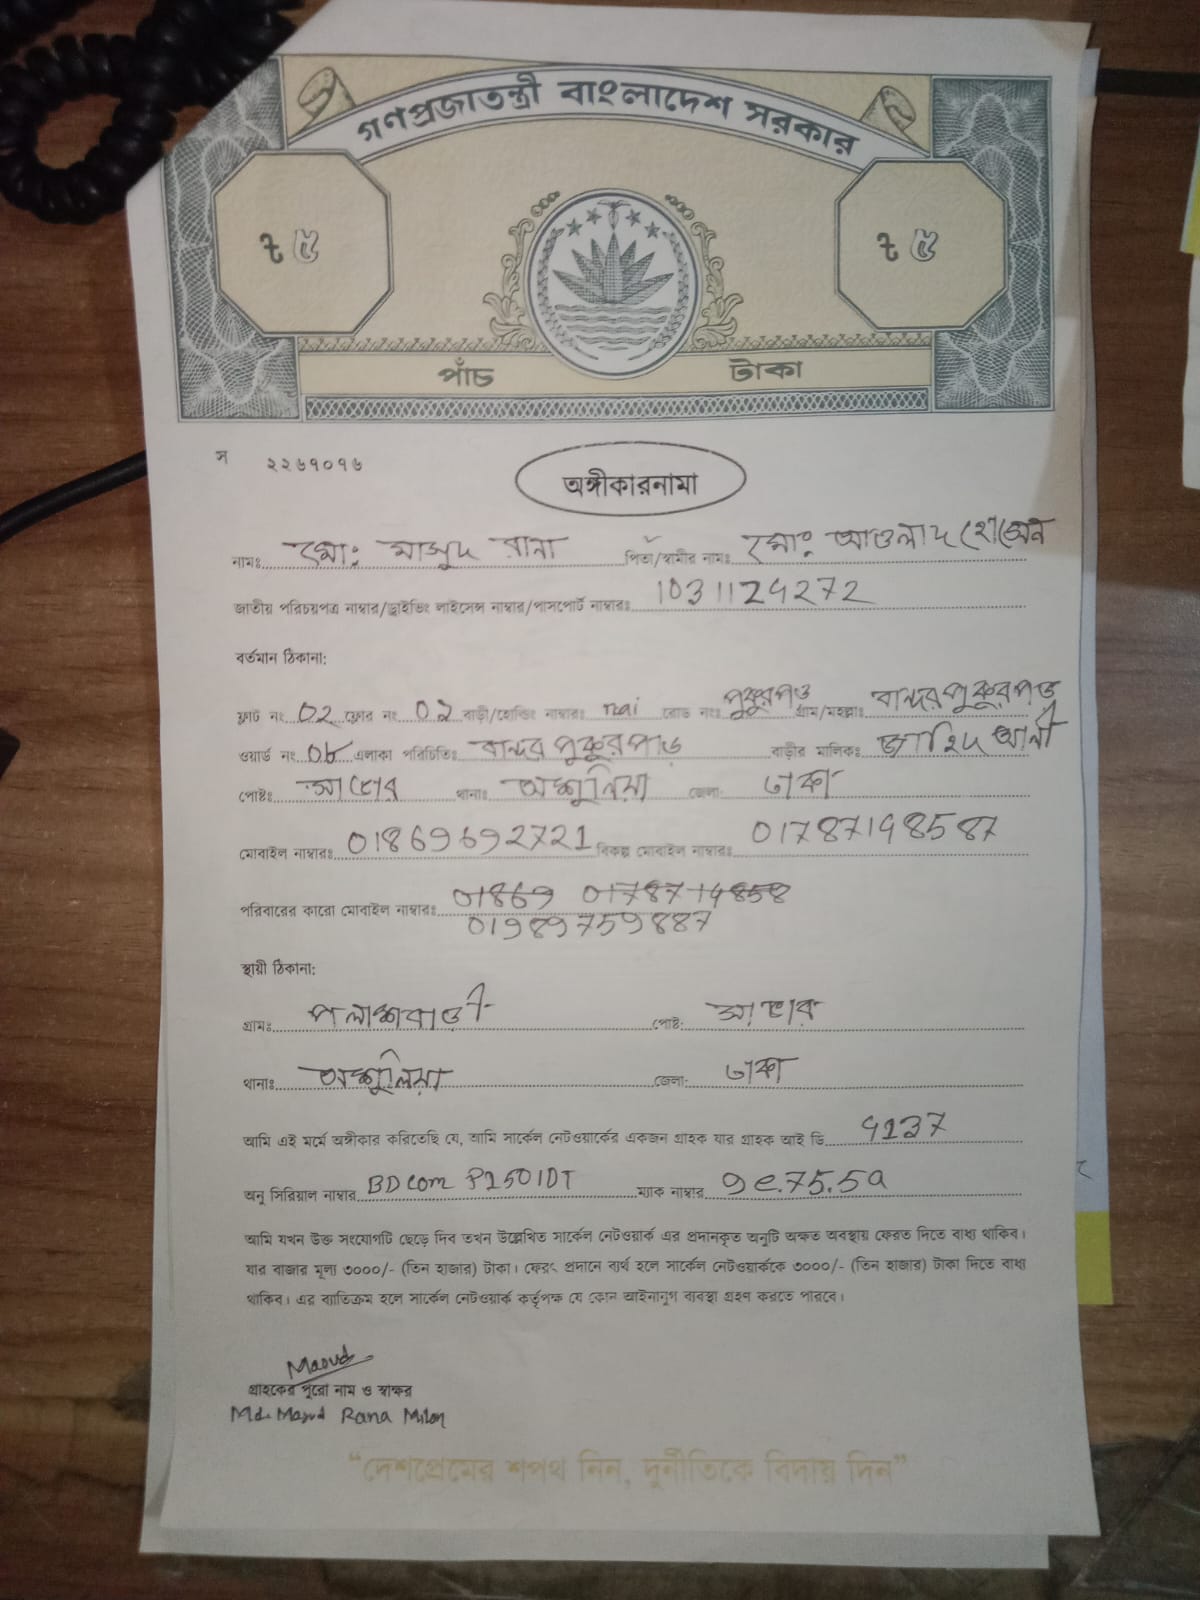 গণপ্রজাতন্ত্রী বাংলাদেশ সরকার
৳ ৫ ৳ ৫
পাঁচ টাকা
স ২২৬৭০৭৬
অঙ্গীকারনামা
নামঃ মোঃ মাসুদ রানা পিতা/স্বামীর নামঃ মোঃ আওলাদ হোসেন
জাতীয় পরিচয়পত্র নাম্বার/ড্রাইভিং লাইসেন্স নাম্বার/পাসপোর্ট নাম্বারঃ 1031124272
বর্তমান ঠিকানা:
ফ্লাট নং 02 ফ্লোর নং 02 বাড়ী/হোল্ডিং নাম্বারঃ nai রোড নংঃ পুকুরপাড় গ্রাম/মহল্লাঃ বান্দরপুকুরপাড়
ওয়ার্ড নং 08 এলাকা পরিচিতিঃ বান্দরপুকুরপাড় বাড়ীর মালিকঃ জাহিদ আলী
পোষ্টঃ সাভার থানাঃ আশুলিয়া জেলা: ঢাকা
মোবাইল নাম্বারঃ 01869692721 বিকল্প মোবাইল নাম্বারঃ 01787148587
পরিবারের কারো মোবাইল নাম্বারঃ 01869 0178714858
01989759887
স্থায়ী ঠিকানা:
গ্রামঃ পলাশবাড়ী পোষ্ট: সাভার
থানাঃ আশুলিয়া জেলা: ঢাকা
আমি এই মর্মে অঙ্গীকার করিতেছি যে, আমি সার্কেল নেটওয়ার্কের একজন গ্রাহক যার গ্রাহক আই ডি 4137
অনু সিরিয়াল নাম্বার BDcom P1501DT ম্যাক নাম্বার 9e.75.5a
আমি যখন উক্ত সংযোগটি ছেড়ে দিব তখন উল্লেখিত সার্কেল নেটওয়ার্ক এর প্রদানকৃত অনুটি অক্ষত অবস্থায় ফেরত দিতে বাধ্য থাকিব।
যার বাজার মূল্য ৩০০০/- (তিন হাজার) টাকা। ফেরৎ প্রদানে ব্যর্থ হলে সার্কেল নেটওয়ার্ককে ৩০০০/- (তিন হাজার) টাকা দিতে বাধ্য
থাকিব। এর ব্যতিক্রম হলে সার্কেল নেটওয়ার্ক কর্তৃপক্ষ যে কোন আইনানুগ ব্যবস্থা গ্রহণ করতে পারবে।
Masud
গ্রাহকের পুরো নাম ও স্বাক্ষর
Md. Masud Rana Milon
"দেশপ্রেমের শপথ নিন, দুর্নীতিকে বিদায় দিন"